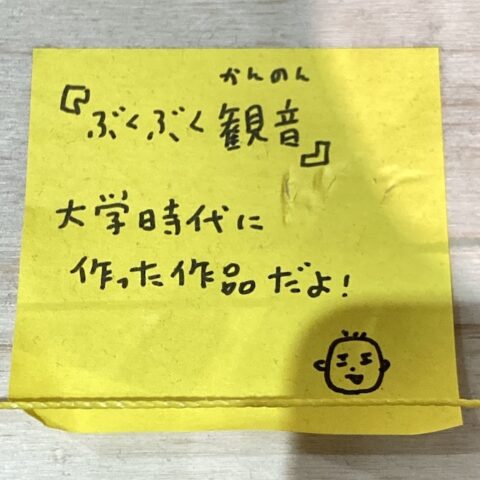 かんのん
『ぶくぶく観音』
大学時代に
作った作品だよ!